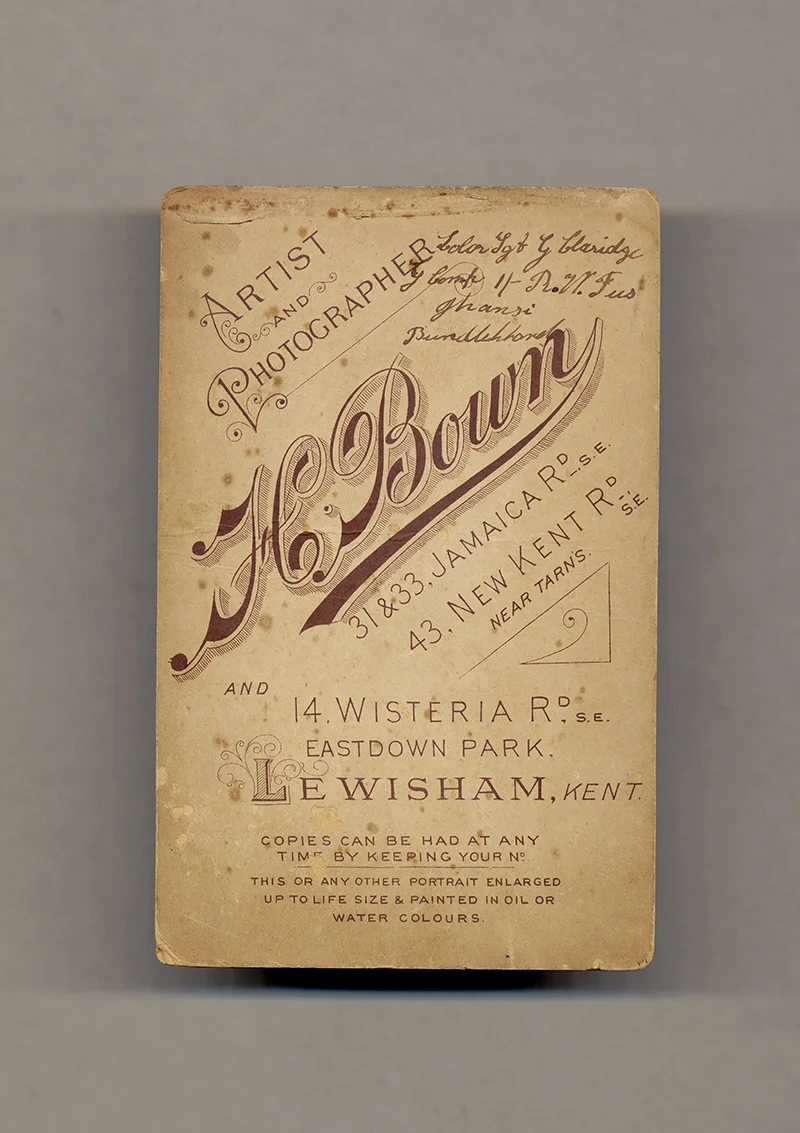 ARTIST
AND
PHOTOGRAPHER
Color Sgt G Claridge
G Comp II R.W. Fus
Jhansi
H. Bown
31 & 33, JAMAICA RD., S.E.
43, NEW KENT RD., S.E.
NEAR TARN'S.
AND
14, WISTERIA RD., S.E.
EASTDOWN PARK,
LEWISHAM, KENT.
COPIES CAN BE HAD AT ANY
TIME BY KEEPING YOUR No
THIS OR ANY OTHER PORTRAIT ENLARGED
UP TO LIFE SIZE & PAINTED IN OIL OR
WATER COLOURS.